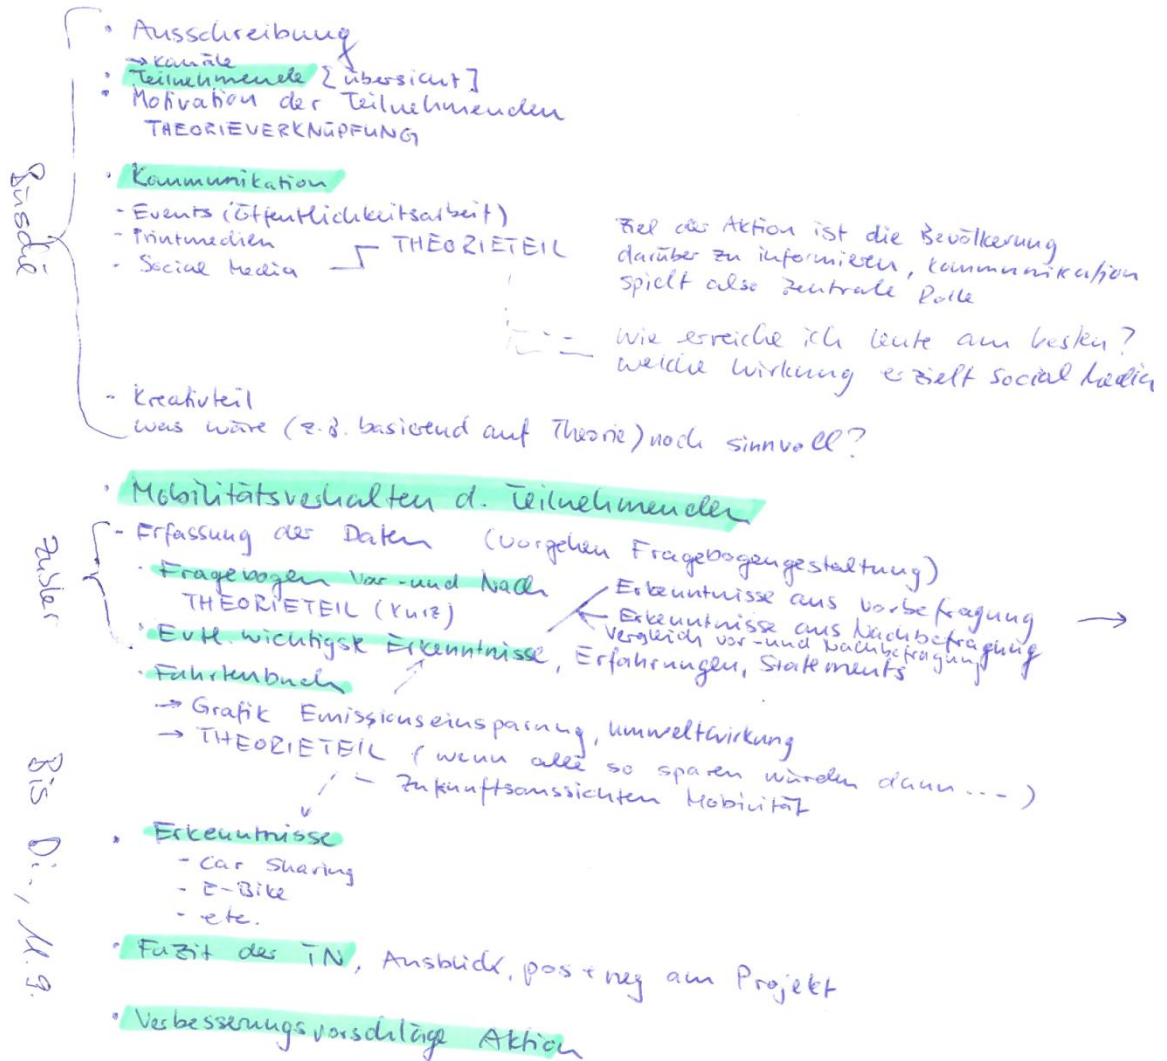 · Ausschreibung
→ Kanäle
· Teilnehmende [übersicht]
· Motivation der Teilnehmenden
THEORIEVERKNÜPFUNG
· Kommunikation
- Events (Öffentlichkeitsarbeit)
- Printmedien
- Social Media
THEORIETEIL
Ziel der Aktion ist die Bevölkerung
darüber zu informieren, Kommunikation
spielt also zentrale Rolle
Wie erreiche ich Leute am besten?
welche Wirkung erzielt Social Media
- Kreativteil
was wäre (z.B. basierend auf Theorie) noch sinnvoll?
· Mobilitätsverhalten d. Teilnehmenden
- Erfassung der Daten (Vorgehen Fragebogengestaltung)
· Fragebogen Vor- und Nach
THEORIETEIL (kurz)
Erkenntnisse aus Vorbefragung
Erkenntnisse aus Nachbefragung
Vergleich vor- und Nachbefragung
· Evtl. wichtigste Erkenntnisse, Erfahrungen, Statements
· Fahrtenbuch
→ Grafik Emissionseinsparung, Umweltwirkung
→ THEORIETEIL (wenn alle so sparen würden dann ...)
- Zukunftsaussichten Mobilität
· Erkenntnisse
- Car Sharing
- E-Bike
- etc.
· Fazit der TN, Ausblick, pos + neg am Projekt
· Verbesserungsvorschläge Aktion
Bis Di., 11.9.